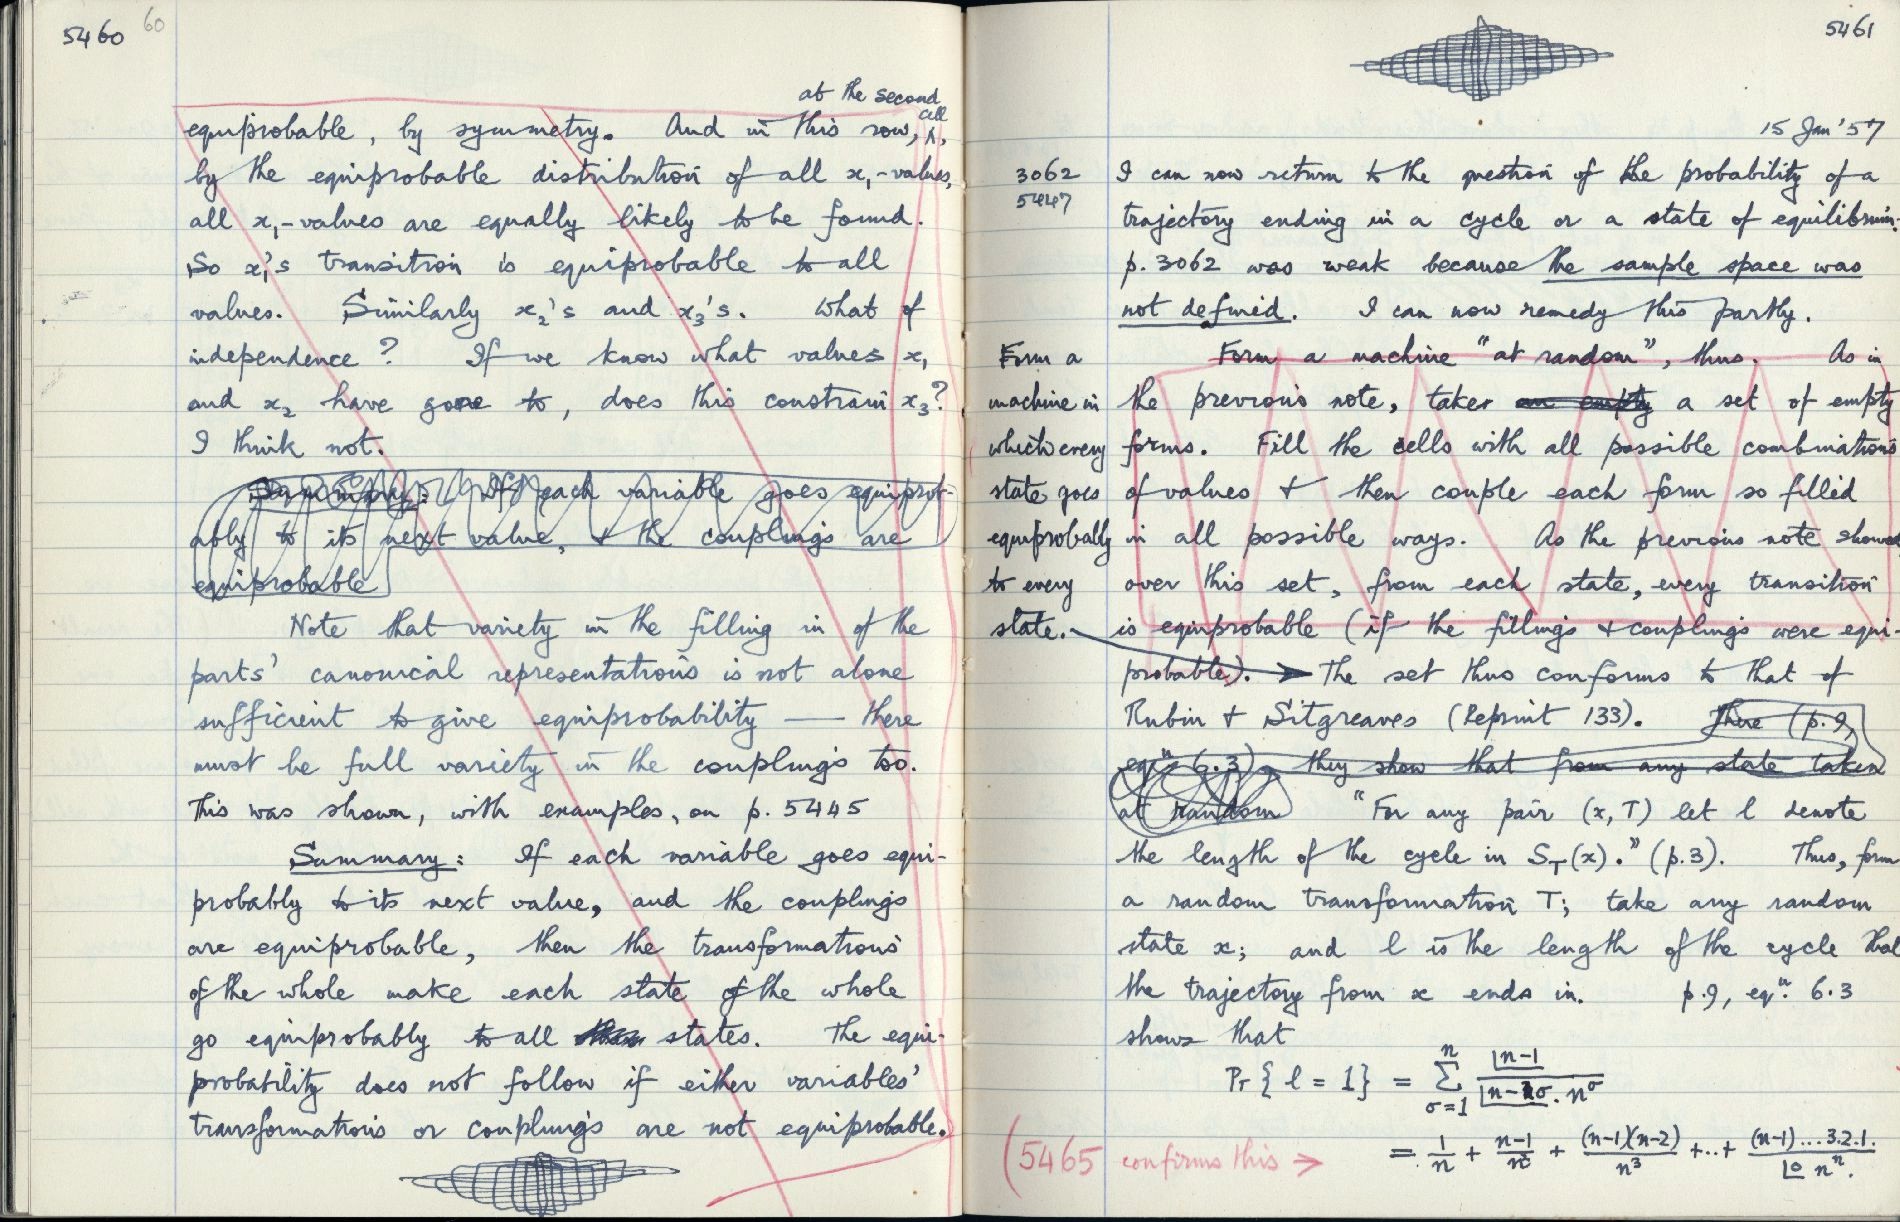 5460 60
at the second
cell
equiprobable, by symmetry. And in this row, ∧,
by the equiprobable distribution of all x₁-values,
all x₁-values are equally likely to be found.
So x₁'s transition is equiprobable to all
values. Similarly x₂'s and x₃'s. What of
independence? If we know what values x₁
and x₂ have gone to, does this constrain x₃?
I think not.
Summary: If each variable goes equiprob-
ably to its next value, & the couplings are
equiprobable
Note that variety in the filling in of the
parts' canonical representations is not alone
sufficient to give equiprobability — there
must be full variety in the couplings too.
This was shown, with examples, on p. 5445
Summary: If each variable goes equi-
probably to its next value, and the couplings
are equiprobable, then the transformations
of the whole make each state of the whole
go equiprobably to all states. The equi-
probability does not follow if either variables'
transformations or couplings are not equiprobable.
5461
15 Jan '57
3062
5447
I can now return to the question of the probability of a
trajectory ending in a cycle or a state of equilibrium.
p. 3062 was weak because the sample space was
not defined. I can now remedy this partly.
Form a
machine in
which every
state goes
equiprobably
to every
state.
Form a machine "at random", thus. As in
the previous note, take an empty a set of empty
forms. Fill the cells with all possible combinations
of values & then couple each form so filled
in all possible ways. As the previous note showed
over this set, from each state, every transition
is equiprobable (if the fillings & couplings were equi-
probable). → The set thus conforms to that of
Rubin & Sitgreaves (Reprint 133). There (p.9,
eqⁿ 6.3), they show that from any state taken
at random "For any pair (x, T) let l denote
the length of the cycle in S_T(x)." (p.3). Thus, form
a random transformation T; take any random
state x; and l is the length of the cycle that
the trajectory from x ends in. p.9, eqⁿ. 6.3
shows that
Pr{l = 1} = Σ_{σ=1}^{n} |n-1 / |n-σ . n^σ
(5465 confirms this →
= 1/n + (n-1)/n² + (n-1)(n-2)/n³ + .. + (n-1)...3.2.1. / |0 nⁿ.